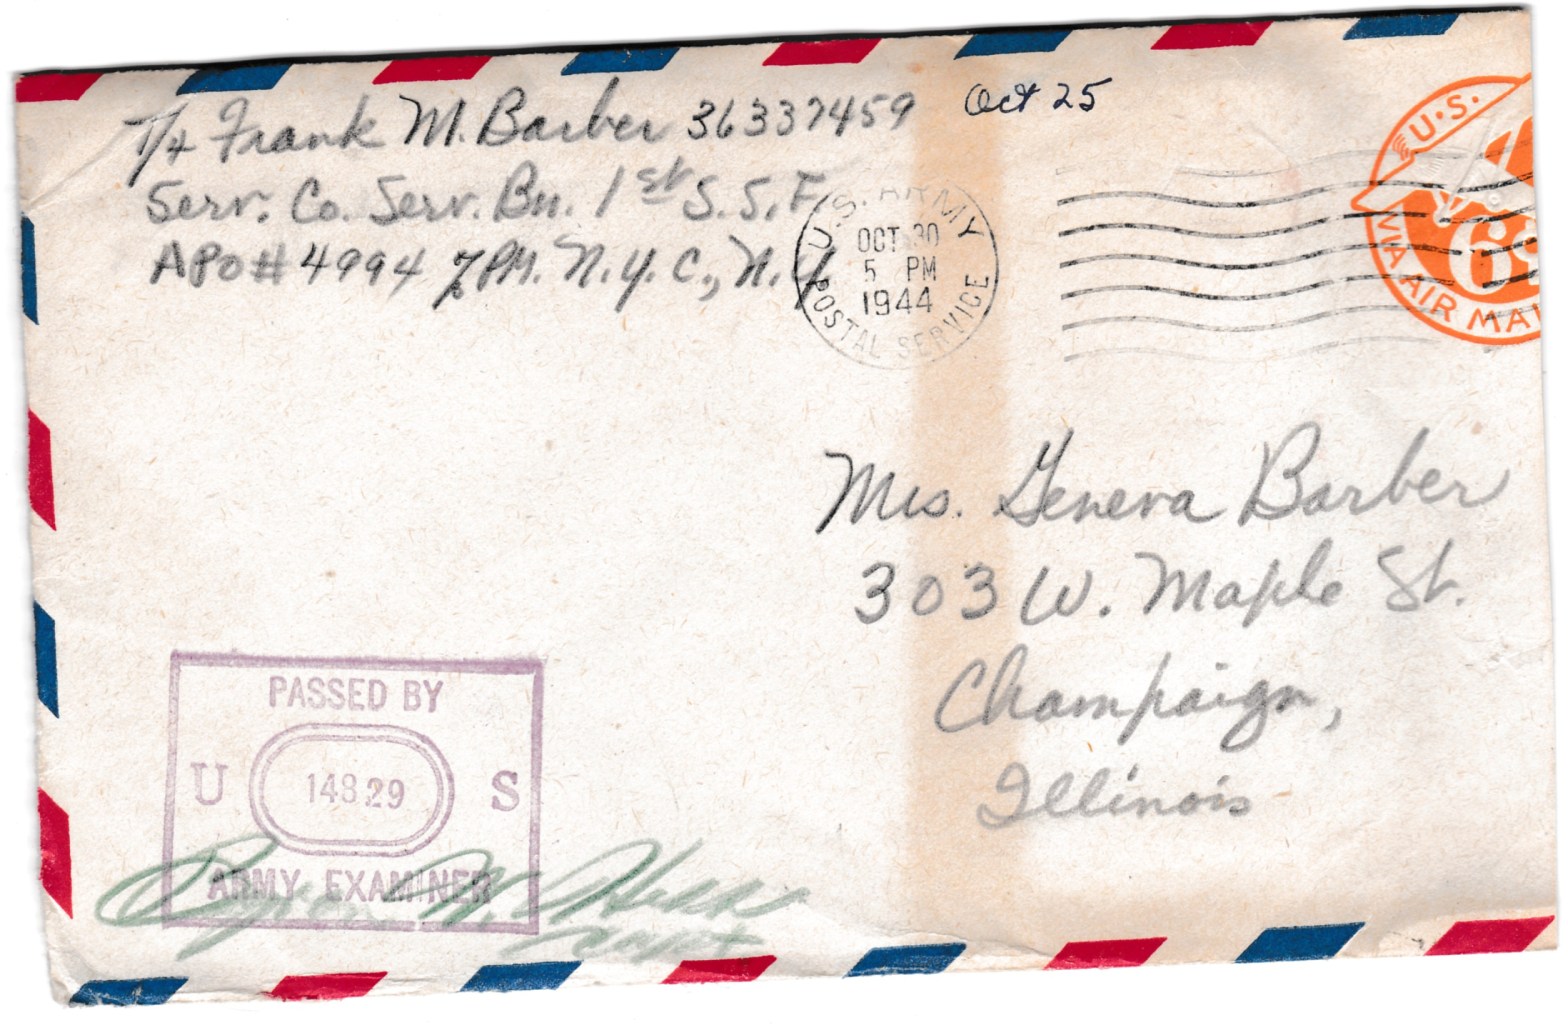 T/4 Frank M. Barber 36337459
Oct 25
Serv. Co. Serv. Bn. 1st S.S.F.
APO # 4994 % PM. N.Y.C., N.Y.
U.S. ARMY
OCT 30
5 PM
1944
POSTAL SERVICE
U.S.
6¢
VIA AIR MAI
Mrs. Geneva Barber
303 W. Maple St.
Champaign,
Illinois
PASSED BY
U 14829 S
ARMY EXAMINER
Capt